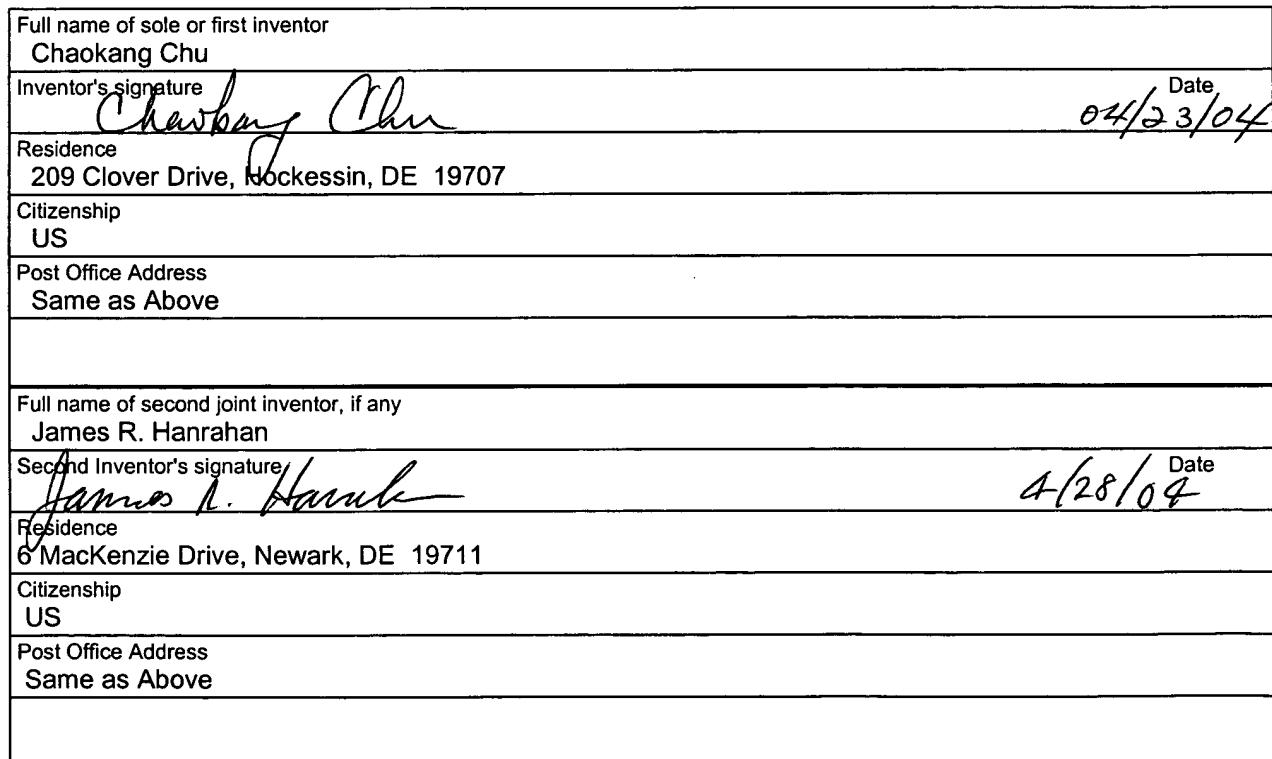 Full name of sole or first inventor
Chaokang Chu
Inventor's signature Date
Chaokang Chu 04/23/04
Residence
209 Clover Drive, Hockessin, DE 19707
Citizenship
US
Post Office Address
Same as Above
Full name of second joint inventor, if any
James R. Hanrahan
Second Inventor's signature Date
James R. 4/28/04
Residence
6 MacKenzie Drive, Newark, DE 19711
Citizenship
US
Post Office Address
Same as Above